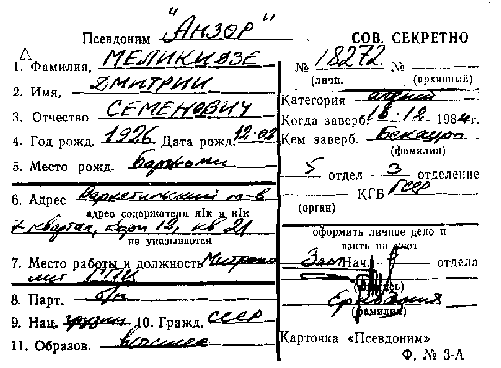 Псевдоним "Анзор"
СОВ. СЕКРЕТНО
1. Фамилия, МЕЛИКИДЗЕ
2. Имя, ДМИТРИЙ
3. Отчество СЕМЕНОВИЧ
4. Год рожд. 1926 Дата рожд. 12.02
5. Место рожд. Боржоми
6. Адрес Варкетильский м-в
адрес содержателя ЯК и КК
2 квартал, корп 12, кв 21
не указывается
7. Место работы и должность
8. Парт. б/п
9. Нац. грузин 10. Гражд. СССР
11. Образов. высшее
№ 18272 №
(личн. (архивный)
Категория агент
Когда заверб. 18.12.1984г.
Кем заверб.
(фамилия)
5 отдел - 3 отделение
КГБ ГССР
(орган)
оформить личное дело и
взять на учет
Зам Нач. отдела
(фамилия)
Карточка «Псевдоним»
Ф. № 3-А